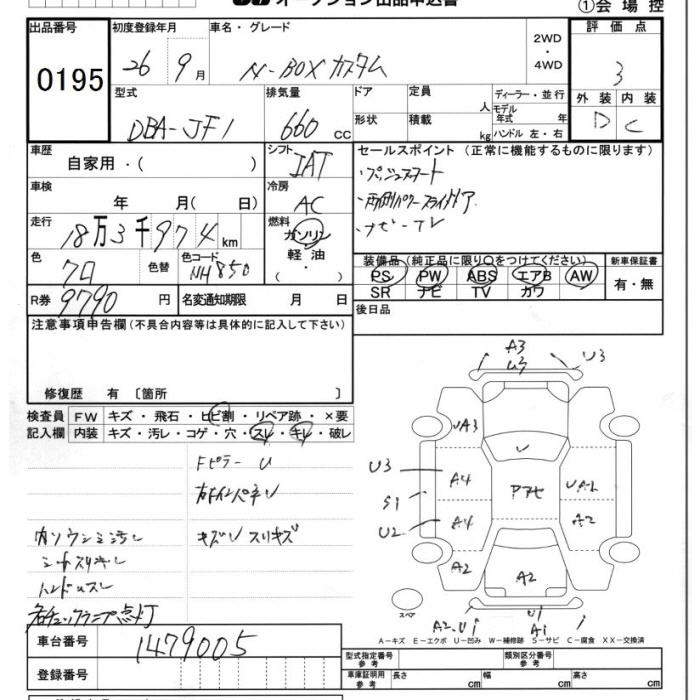 オークション出品申込書
①会場控
出品番号 0195
初度登録年月 26 9月
車名・グレード N-BOXカスタム
2WD・4WD
評価点 3
外装 D 内装 C
型式 DBA-JF1
排気量 660 cc
ドア 形状
定員 人 積載 kg
ディーラー・並行
モデル年式 年
ハンドル 左・右
車歴 自家用・( )
シフト IAT
セールスポイント (正常に機能するものに限ります)
・プッシュスタート
・両側パワースライドドア
・ナビ-TV
車検 年 月( 日)
冷房 AC
走行 18万3千974km
燃料 ガソリン 軽油・( )
色 クロ 色替 色コード NH850
装備品(純正品に限り〇をつけてください)
PS PW ABS エアB AW
SR ナビ TV カワ
新車保証書 有・無
R券 9790円
名変通知期限 月 日
後日品
注意事項申告欄(不具合内容等は具体的に記入して下さい)
修復歴 有〔箇所 〕
検査員記入欄
FW キズ・飛石・ヒビ割・リペア跡・×要
内装 キズ・汚レ・コゲ・穴・スレ・キレ・破レ
Fピラー U
キズU スリキズ
シートスリキレ
ハンドルスレ
各チェックランプ点灯
A3 U3 U3
UA3
U3 A4 P UA1
S1
U2 A4 A2
A2 A2
スペア
A2 U1 U1 A1
A-キズ E-エクボ U-凹み W-補修跡 S-サビ C-腐食 XX-交換済
車台番号 1479005
登録番号
型式指定番号 参考
類別区分番号 参考
車庫証明用 参考 長さ cm 幅 cm 高さ cm